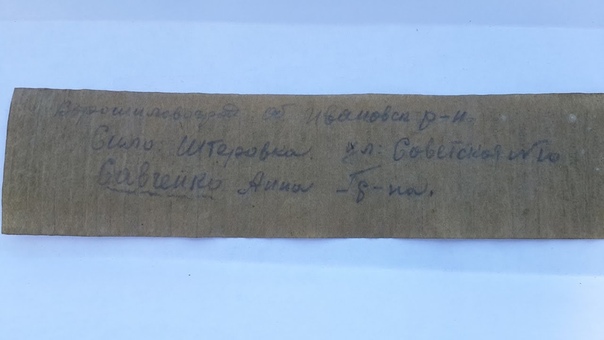 Ворошиловград об Ивановск р-н.
Сило: Штеровка. ул: Советская №10
Савченко Анна